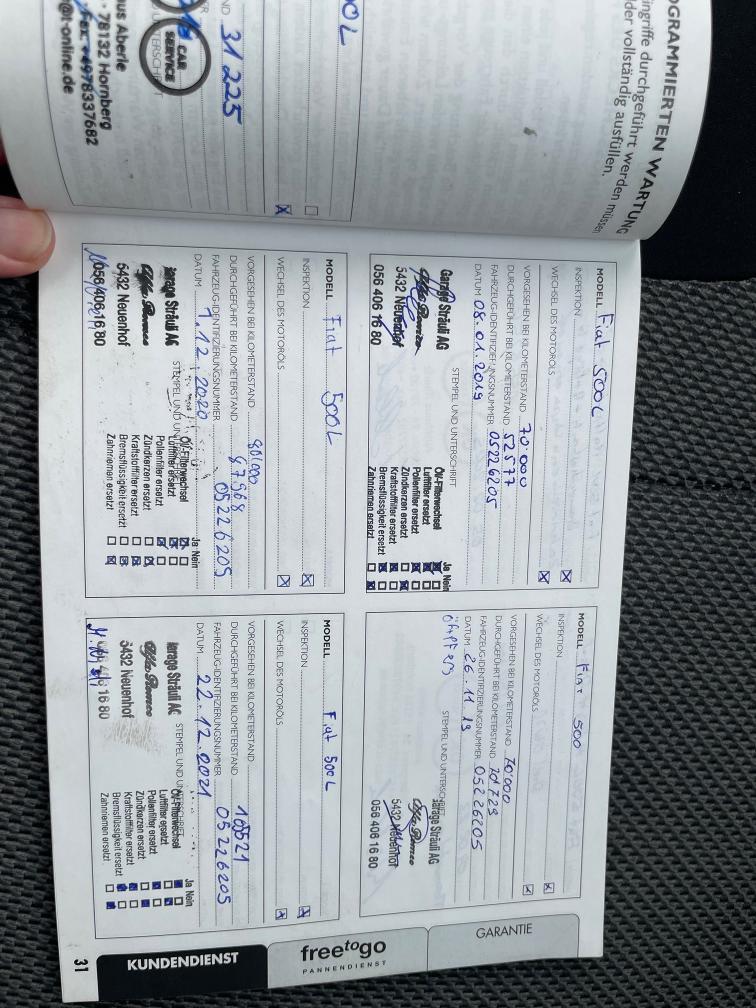 OGRAMMIERTEN WARTUNG
ingriffe durchgeführt werden müssen
der vollständig ausfüllen.
31225
CAR
SERVICE
us Aberle
78132 Hornberg
Fax: +4978337682
@t-online.de
MODELL Fiat 500L
INSPEKTION
WECHSEL DES MOTORÖLS
VORGESEHEN BEI KILOMETERSTAND 70'000
DURCHGEFÜHRT BEI KILOMETERSTAND 52577
FAHRZEUG-IDENTIFIZIERUNGSNUMMER 05226205
DATUM 08.01.2019
STEMPEL UND UNTERSCHRIFT
Garage Sträuli AG
Alfa Romeo
5432 Neuenhof
056 406 16 80
Ja Nein
Öl-Filterwechsel
Luftfilter ersetzt
Pollenfilter ersetzt
Zündkerzen ersetzt
Kraftstofffilter ersetzt
Bremsflüssigkeit ersetzt
Zahnriemen ersetzt
MODELL Fiat 500
INSPEKTION
WECHSEL DES MOTORÖLS
VORGESEHEN BEI KILOMETERSTAND 70'000
DURCHGEFÜHRT BEI KILOMETERSTAND
FAHRZEUG-IDENTIFIZIERUNGSNUMMER 05226205
DATUM 26.11.19
STEMPEL UND UNTERSCHRIFT
Garage Sträuli AG
Alfa Romeo
5432 Neuenhof
056 406 16 80
MODELL Fiat 500L
INSPEKTION
WECHSEL DES MOTORÖLS
VORGESEHEN BEI KILOMETERSTAND
DURCHGEFÜHRT BEI KILOMETERSTAND
FAHRZEUG-IDENTIFIZIERUNGSNUMMER 05226205
DATUM 1.12.2020
STEMPEL UND
Garage Sträuli AG
Alfa Romeo
5432 Neuenhof
056 406 16 80
Ja Nein
Öl-Filterwechsel
Luftfilter ersetzt
Pollenfilter ersetzt
Zündkerzen ersetzt
Kraftstofffilter ersetzt
Bremsflüssigkeit ersetzt
Zahnriemen ersetzt
MODELL Fiat 500L
INSPEKTION
WECHSEL DES MOTORÖLS
VORGESEHEN BEI KILOMETERSTAND
DURCHGEFÜHRT BEI KILOMETERSTAND
FAHRZEUG-IDENTIFIZIERUNGSNUMMER 05226205
DATUM 22.12.2021
STEMPEL UND UNTERSCHRIFT
Garage Sträuli AG
Alfa Romeo
5432 Neuenhof
16 80
Ja Nein
Öl-Filterwechsel
Luftfilter ersetzt
Pollenfilter ersetzt
Zündkerzen ersetzt
Kraftstofffilter ersetzt
Bremsflüssigkeit ersetzt
Zahnriemen ersetzt
GARANTIE
freetogo
PANNENDIENST
KUNDENDIENST
31